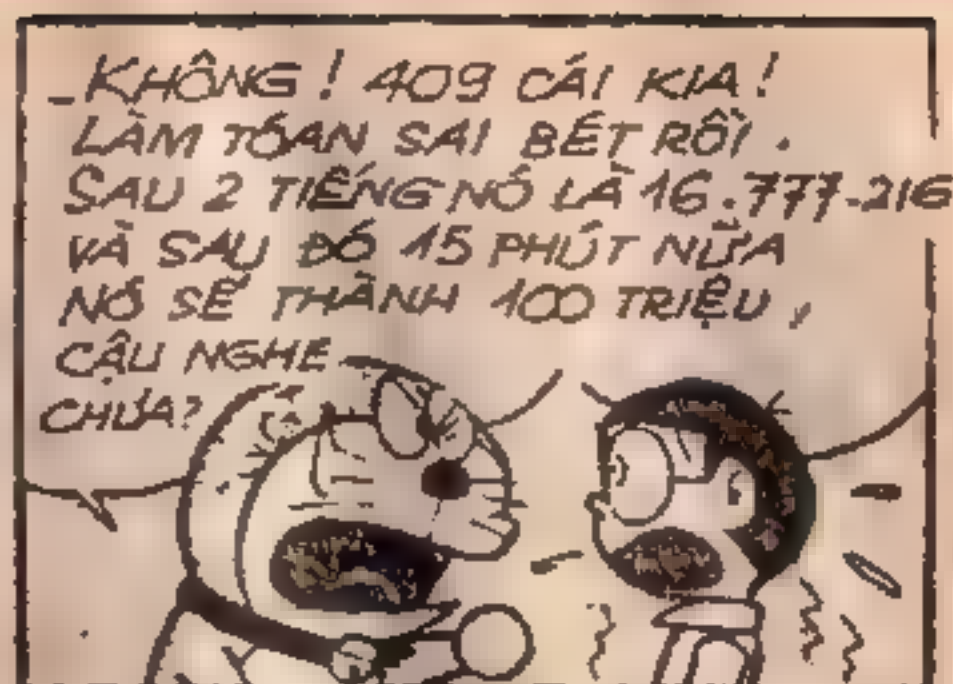 _KHÔNG ! 409 CÁI KIA !
LÀM TÓAN SAI BÉT RỒI .
SAU 2 TIẾNG NÓ LÀ 16.777.216
VÀ SAU ĐÓ 15 PHÚT NỮA
NÓ SẼ THÀNH 100 TRIỆU ,
CẬU NGHE
CHƯA?